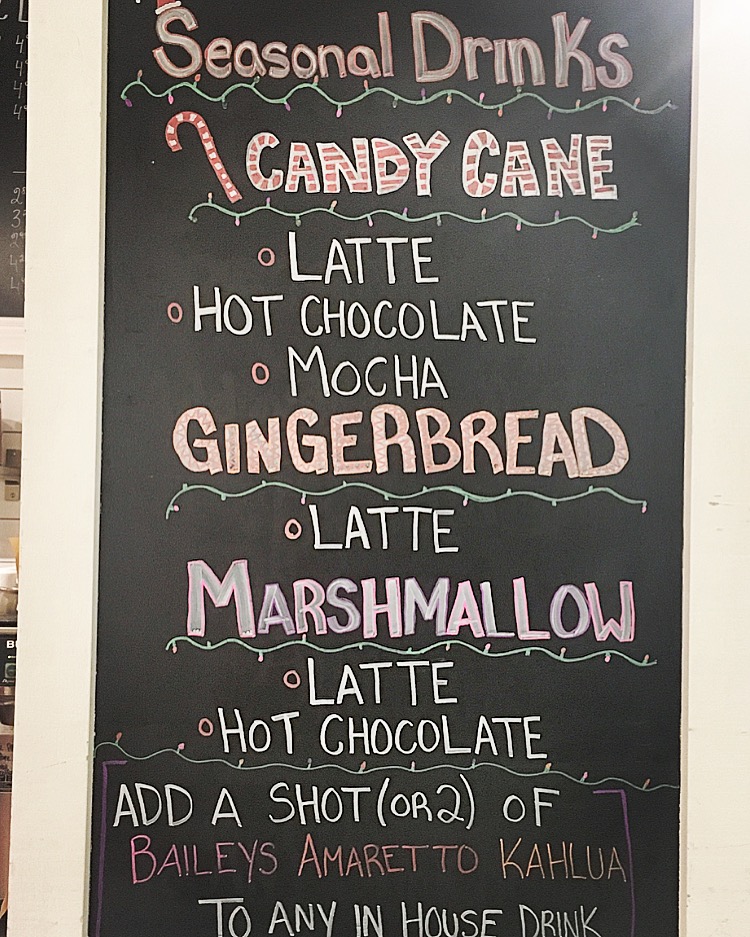 Seasonal Drinks
CANDY CANE
LATTE
HOT CHOCOLATE
MOCHA
GINGERBREAD
LATTE
MARSHMALLOW
LATTE
HOT CHOCOLATE
ADD A SHOT (OR 2) OF
BAILEYS AMARETTO KAHLUA
TO ANY IN HOUSE DRINK